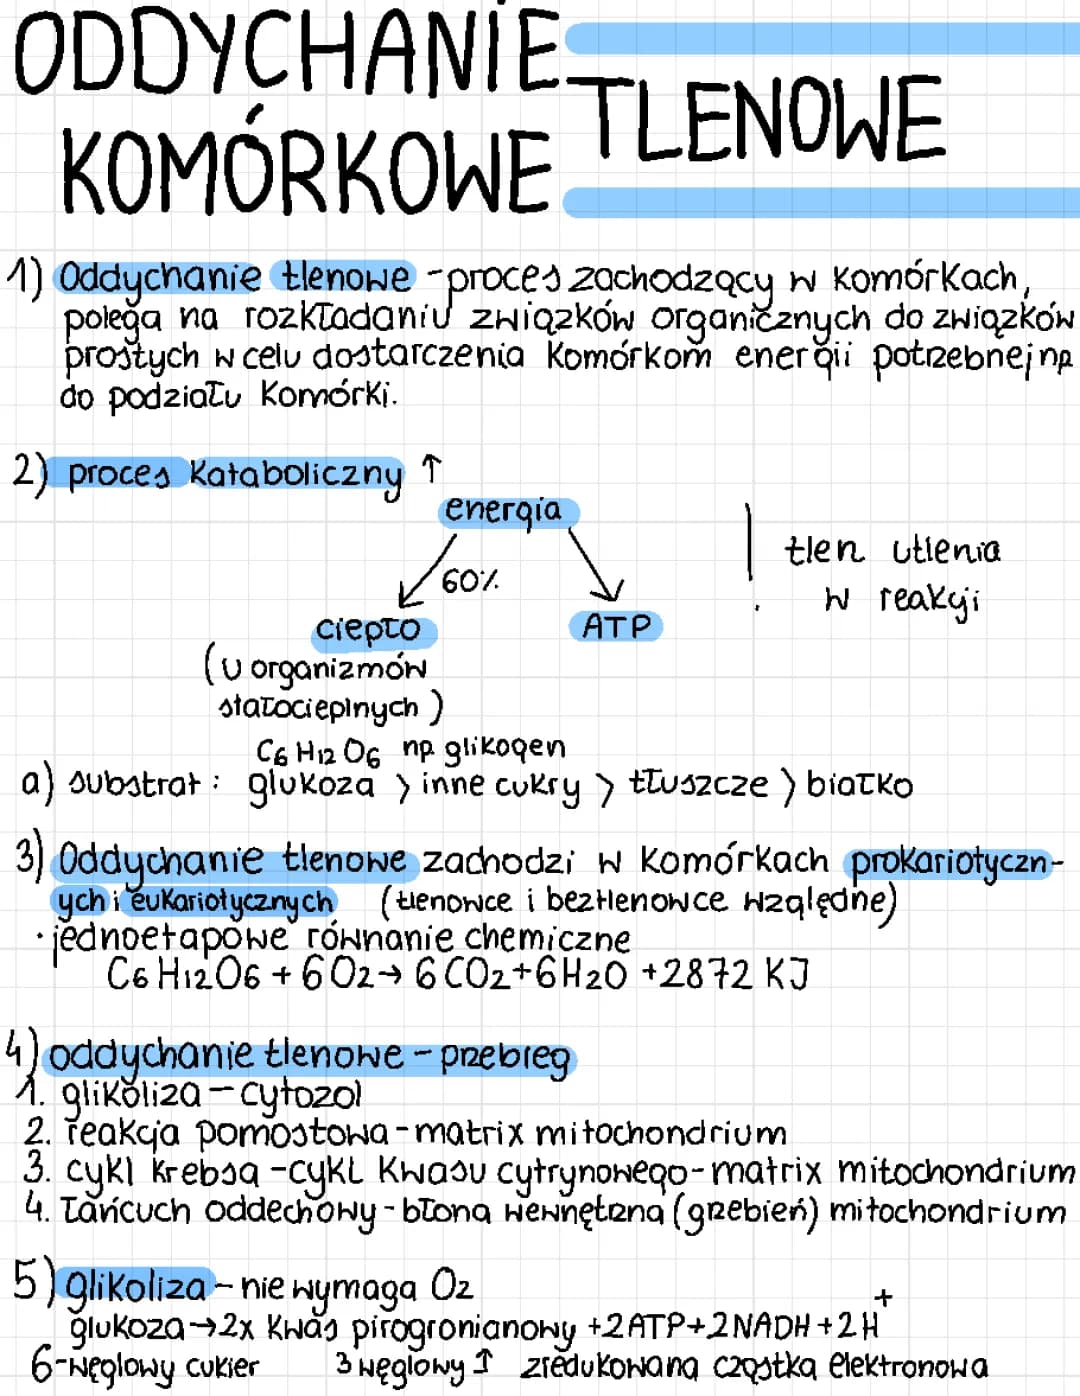 ODDYCHANIE
KOMÓRKOWE
TLENOWE
1) Oddychanie tlenowe - proces zachodzący w komórkach,
polega na rozkładaniu związków organicznych do związków
prostych w celu dostarczenia komórkom energii potrzebnej np
do podziału komórki.
2) proces kataboliczny ↑
energia
60%
ciepło
ATP
(u organizmów
stałocieplnych)
tlen utlenia
w reakcji
C6 H12 O6 np glikogen
a) substrat: glukoza > inne cukry > tłuszcze > białko
3) Oddychanie tlenowe zachodzi w komórkach prokariotyczn-
ych i eukariotycznych (tlenowce i beztlenowce względne)
· jednoetapowe równanie chemiczne
C6 H12 O6 + 6 O2 → 6 CO2 + 6 H2O + 2872 KJ
4) oddychanie tlenowe - przebieg
1. glikoliza - cytozol
2. reakcja pomostowa - matrix mitochondrium
3. cykl krebsa - cykl kwasu cytrynowego - matrix mitochondrium
4. łańcuch oddechowy - błona wewnętrzna (grzebień) mitochondrium
5) glikoliza - nie wymaga O2
glukoza → 2x kwas pirogronianowy + 2 ATP + 2 NADH + 2 H+
6-węglowy cukier 3 węglowy ↑ zredukowana cząstka elektronowa